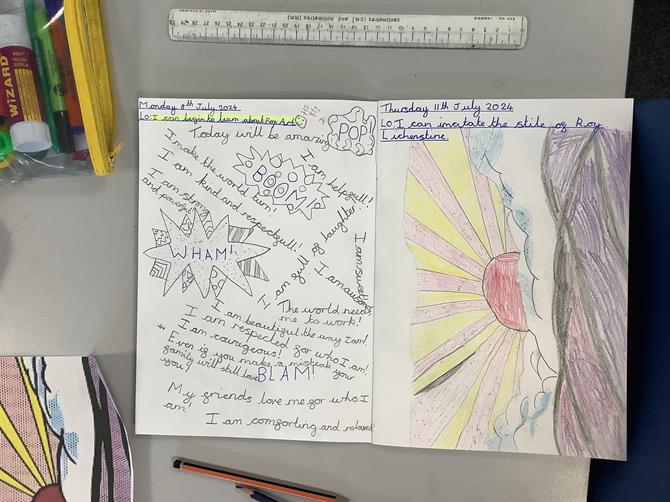 WIZARD
centimetres (cm) and millimetres (mm)
Monday 8th July 2024
LO: I can begin to learn about Pop Art.
Today will be amazing
POP!
I make the world turn!
I am kind and respectfull!
I am strong
and powerful
BOOM!
I am helpfull!
I am full of laughter
I am sweet
I am awsome
WHAM!
The world needs
me to work!
I am beautiful the way I am!
I am respected for who I am!
I am courageous!
* Even if you make a misteak your
family will still love
you!
BLAM!
My friends love me for who I
am!
I am comforting and relaxed
Thursday 11th July 2024
LO: I can imitate the stile of Roy
Lichenstine.